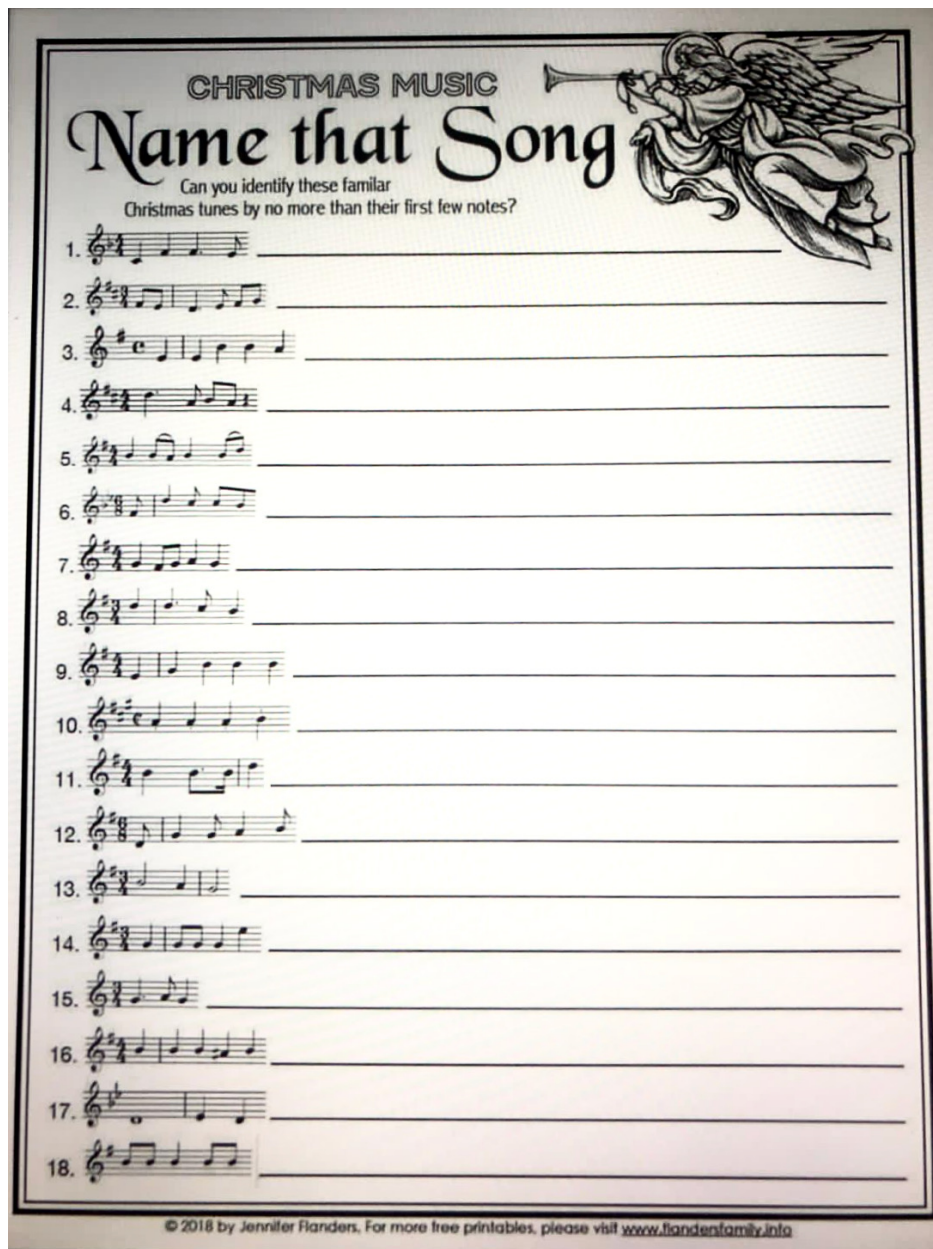 CHRISTMAS MUSIC
Name that Song
Can you identify these familar
Christmas tunes by no more than their first few notes?
1.
2.
3.
4.
5.
6.
7.
8.
9.
10.
11.
12.
13.
14.
15.
16.
17.
18.
© 2018 by Jennifer Flanders. For more free printables, please visit www.flandersfamily.info